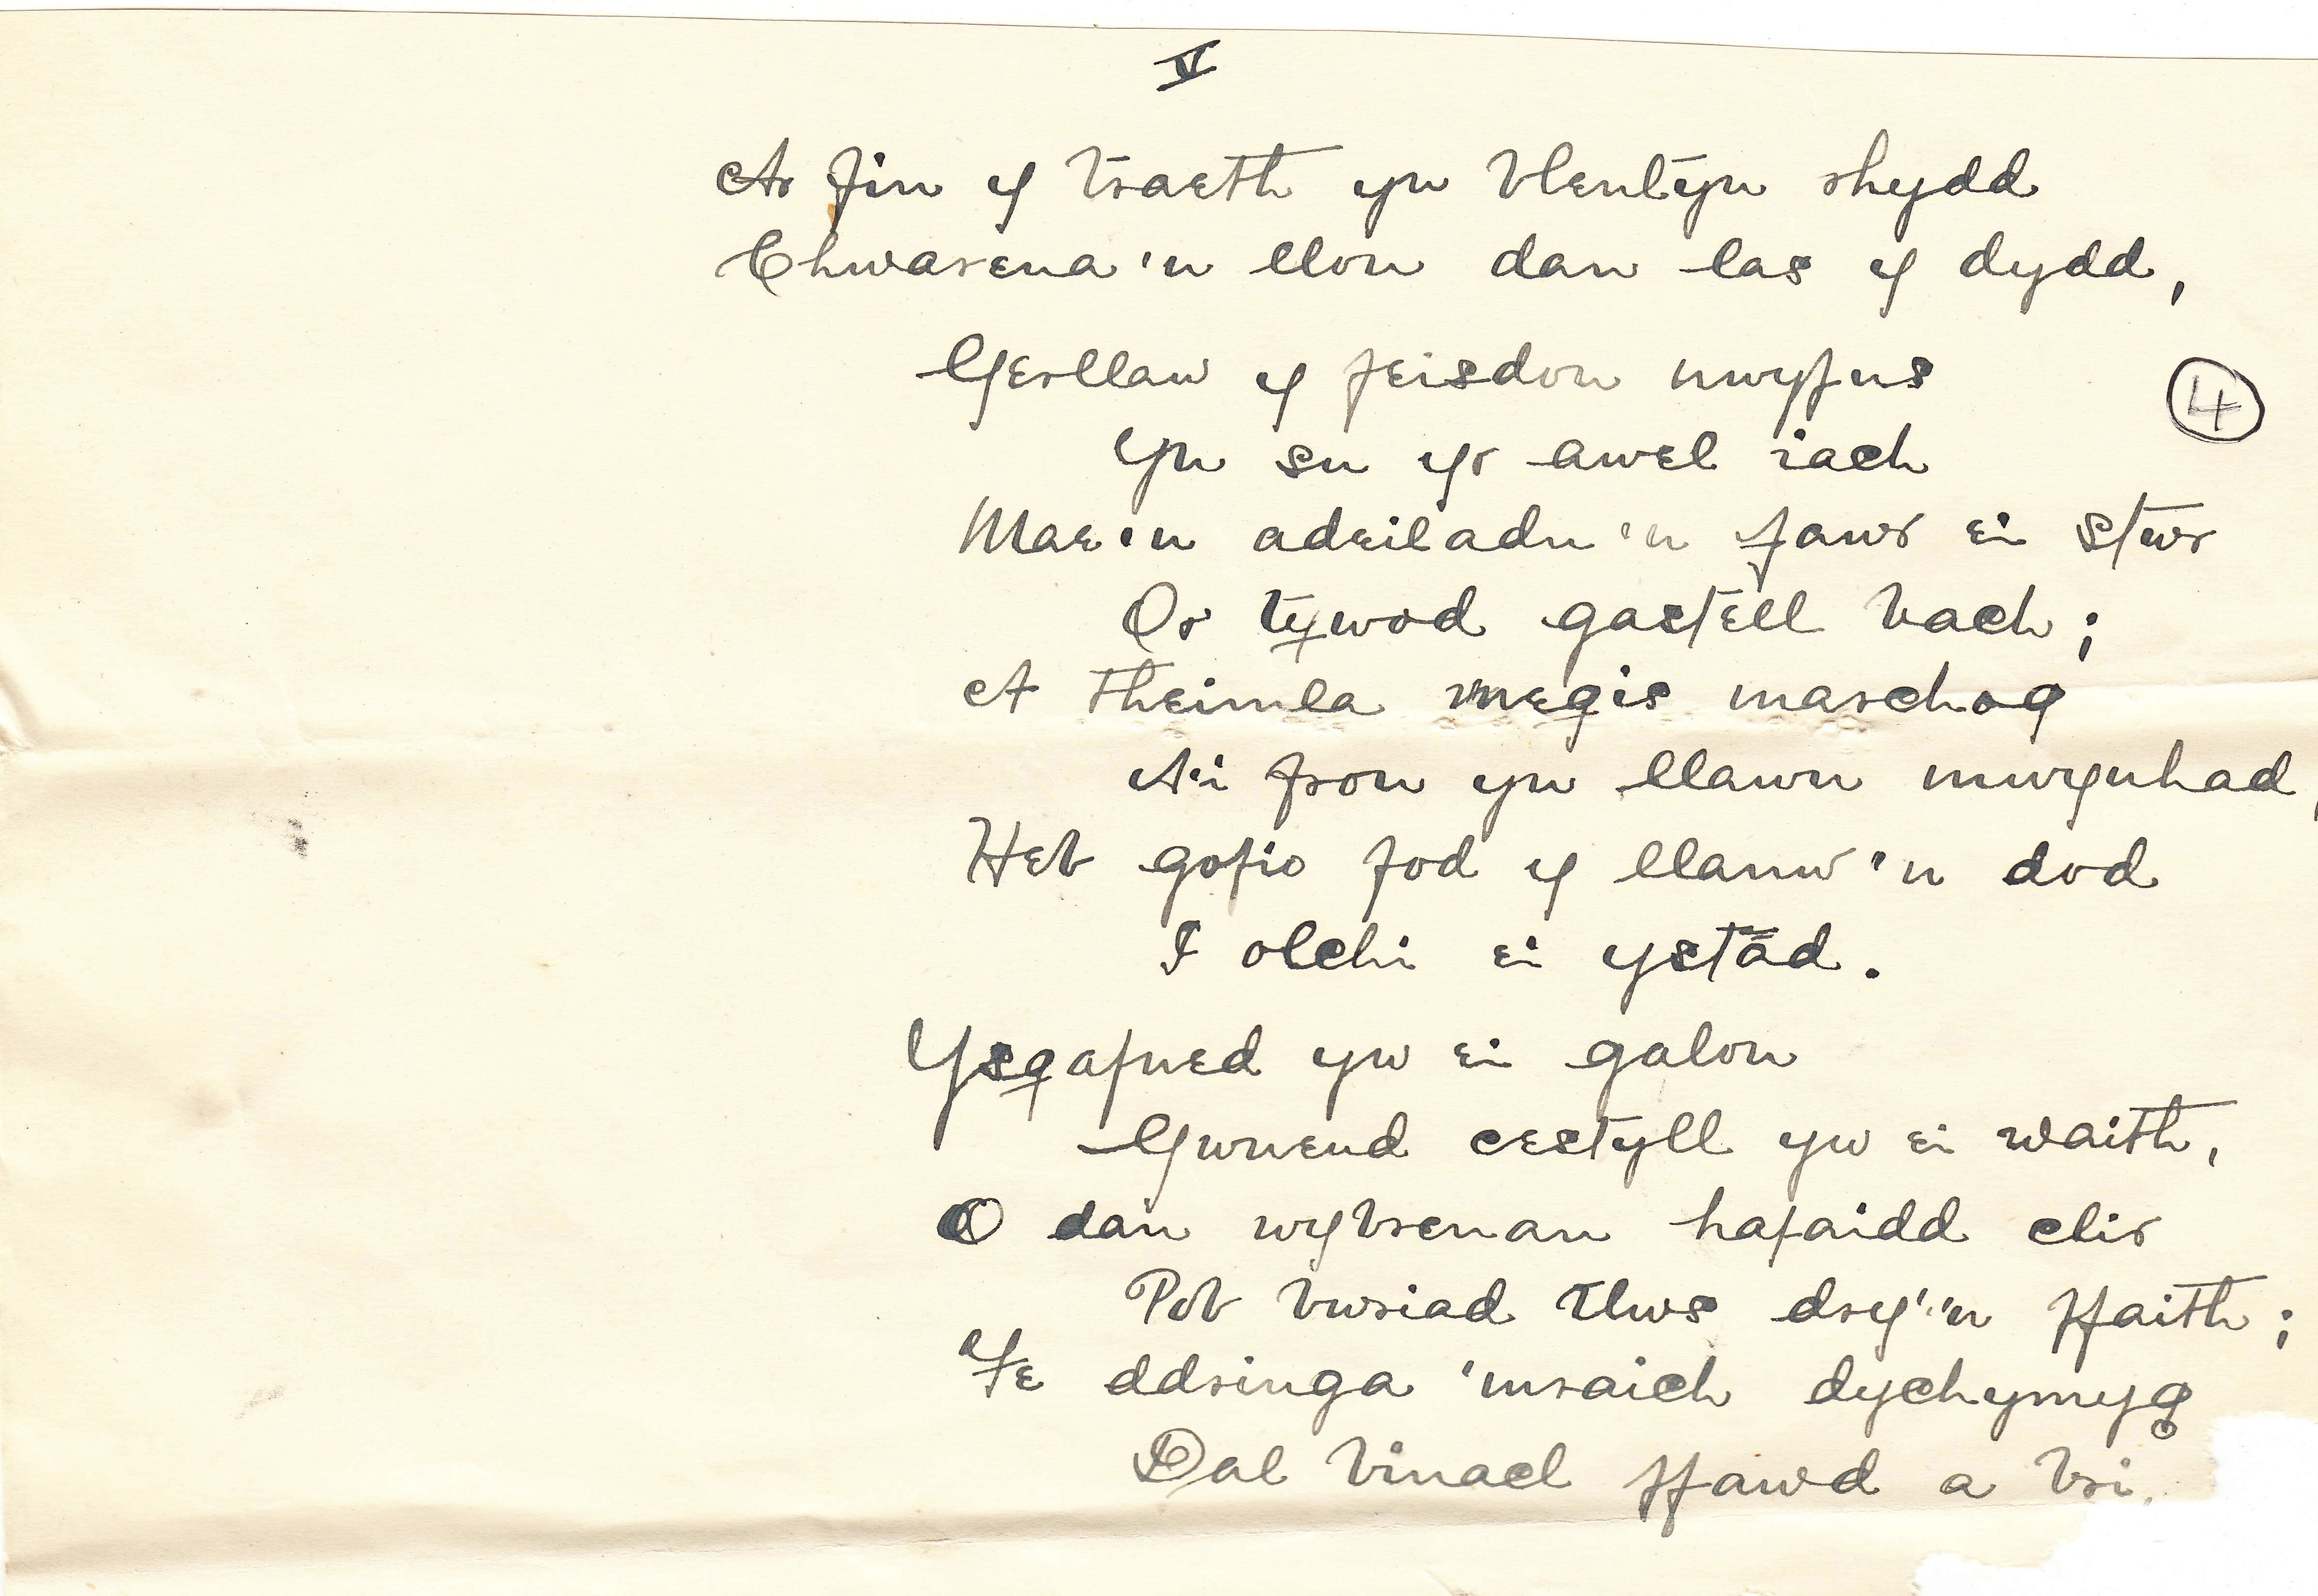 V
Ar fin y traeth yn blentyn rhydd
Chwarena'n llon dan las y dydd,
Gerllaw y feisdon nwyfus
④
Yn su yr awel iach
Mae'n adeiladu'n fawr ei stwr
Or tywod gastell bach;
A theimla megis marchog
A'i fron yn llawn mwynhad,
Heb gofio fod y llanw'n dod
I olchi ei ystâd.
Ysgafned yw ei galon
Gwneud cestyll yw ei waith,
O dan wybrenau hafaidd clir
Pob bwriad tlws dry'n ffaith;
Fe ddringa 'mraich dychymyg
Dal binacl ffawd a bri.